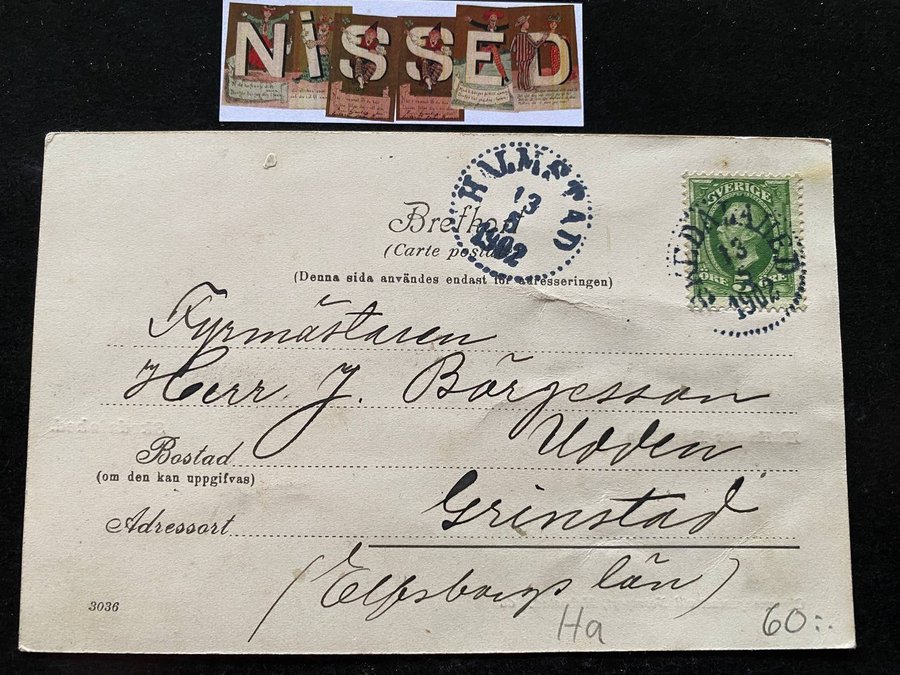 NiSSED
HALMSTAD
13
1902
Brefkort
(Carte postale)
(Denna sida användes endast för adresseringen)
SVERIGE
13
1902
ÖRE 5 ÖRE
Fyrmästaren
Herr J. Börgesson
Udden
Bostad
(om den kan uppgifvas)
Grinstad
Adressort
(Elfsborgs län)
3036
Ha
60:-